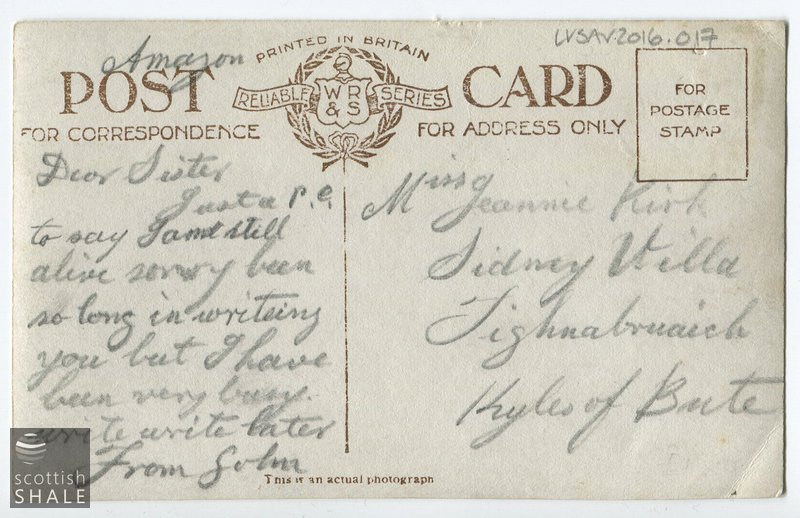 LVSAV2016.017
Amazon
PRINTED IN BRITAIN
POST CARD
RELIABLE WR &S SERIES
FOR CORRESPONDENCE
FOR ADDRESS ONLY
FOR
POSTAGE
STAMP
Dear Sister
Just a P.C.
to say I am still
alive sorry been
so long in writeing
you but I have
been very busy.
write write later
From John
Miss Jeannie Kirk
Sidney Villa
Tighnabruaich
Kyles of Bute
This is an actual photograph
scottish
SHALE